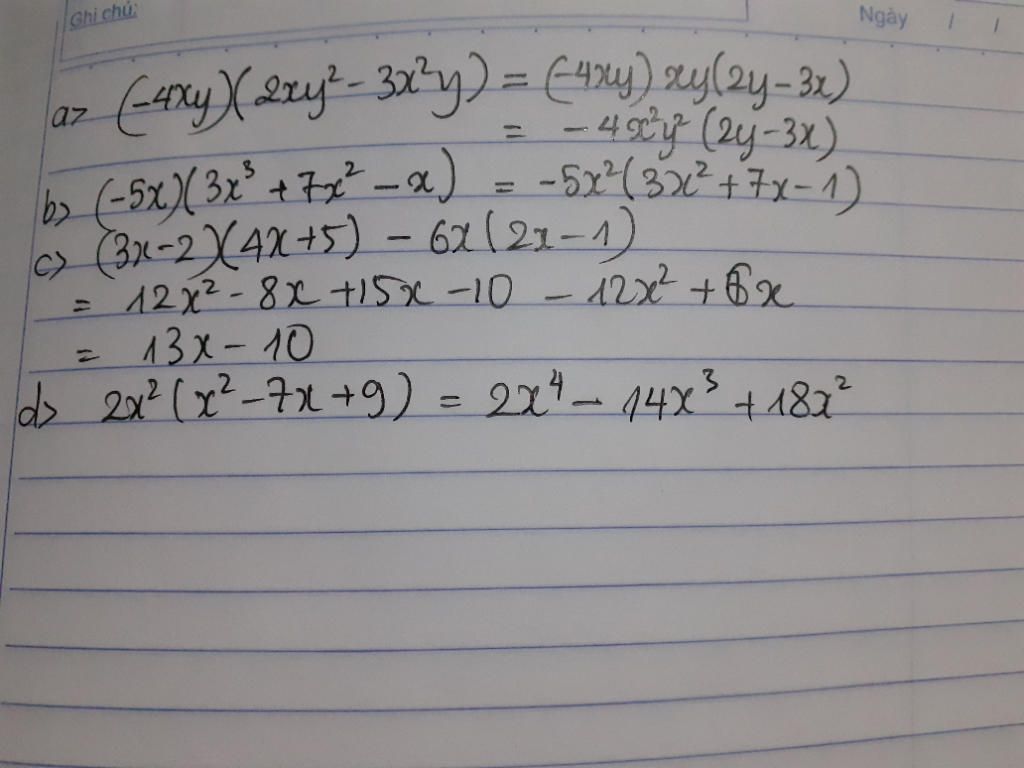 Ghi chú:
Ngày / /
a> (-4xy)(2xy² - 3x²y) = (-4xy) xy(2y - 3x)
= -4x²y² (2y - 3x)
b> (-5x)(3x³ + 7x² - x) = -5x²(3x² + 7x - 1)
c> (3x - 2)(4x + 5) - 6x(2x - 1)
= 12x² - 8x + 15x - 10 - 12x² + 6x
= 13x - 10
d> 2x²(x² - 7x + 9) = 2x⁴ - 14x³ + 18x²